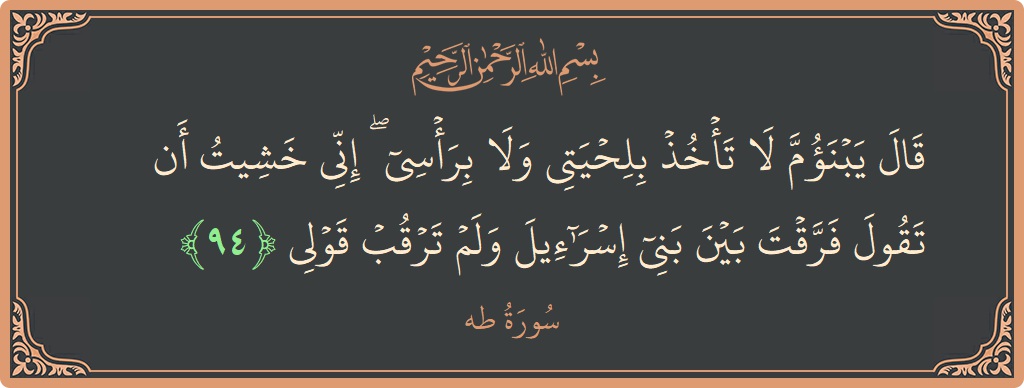 بِسْمِ اللهِ الرَّحْمٰنِ الرَّحِيْمِ
قَالَ يَبْنَؤُمَّ لَا تَأْخُذْ بِلِحْيَتِى وَلَا بِرَأْسِىٓ ۖ إِنِّى خَشِيتُ أَن
تَقُولَ فَرَّقْتَ بَيْنَ بَنِىٓ إِسْرَٰٓءِيلَ وَلَمْ تَرْقُبْ قَوْلِى ﴿٩٤﴾
سُورَةُ طه